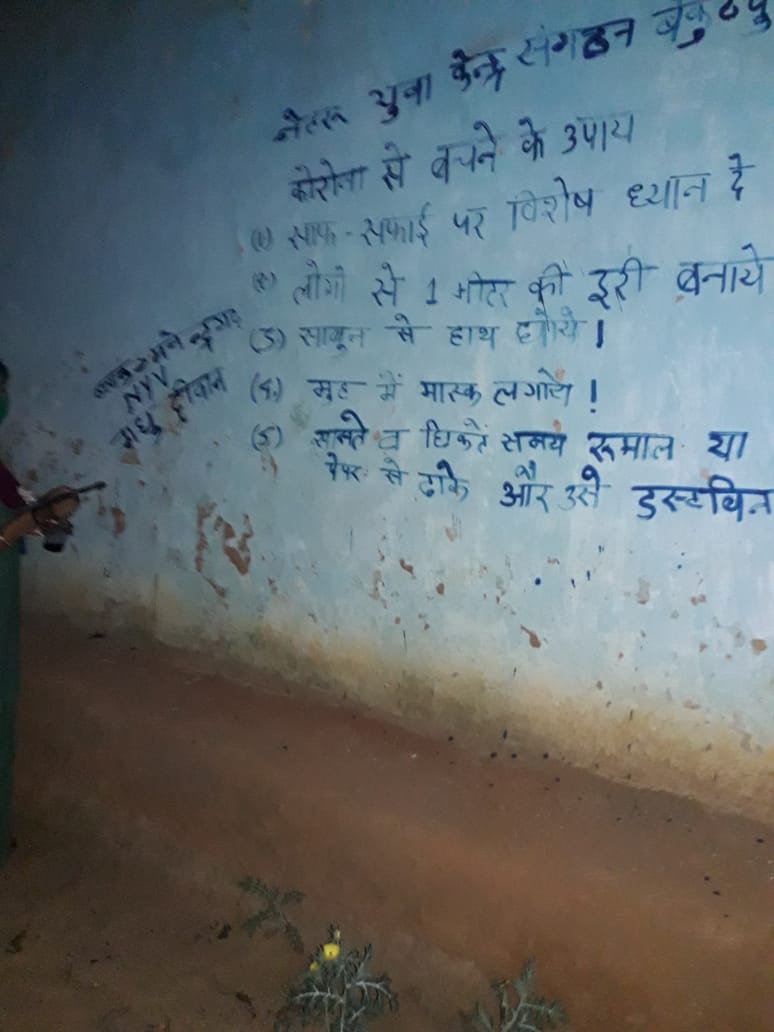 नेहरू युवा केन्द्र संगठन बैकुठपु
कोरोना से बचने के उपाय
(1) साफ-सफाई पर विशेष ध्यान दे
(2) लोगो से 1 मीटर की दूरी बनाये
(3) साबुन से हाथ धोये।
(4) मुह में मास्क लगाये!
(5) खासते व छिकते समय रूमाल या
पेपर से ढाके और उसे डस्टबिन
NYV
मधु दीवान